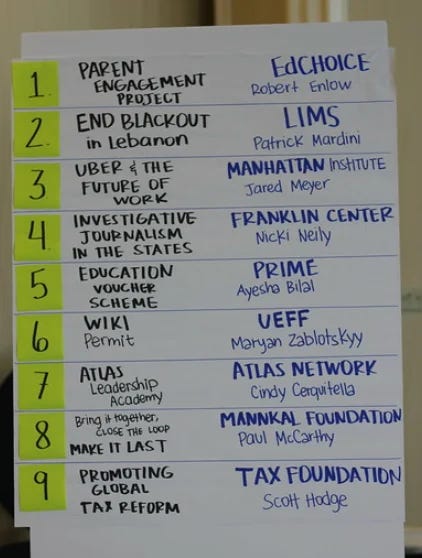 1 PARENT ENGAGEMENT PROJECT EdCHOICE Robert Enlow
2 END BLACKOUT in Lebanon LIMS Patrick Mardini
3 UBER & THE FUTURE OF WORK MANHATTAN INSTITUTE Jared Meyer
4 INVESTIGATIVE JOURNALISM IN THE STATES FRANKLIN CENTER Nicki Neily
5 EDUCATION VOUCHER SCHEME PRIME Ayesha Bilal
6 WIKI Permit UEFF Maryan Zablotskyy
7 ATLAS Leadership Academy ATLAS NETWORK Cindy Cerquitella
8 Bring it together, CLOSE THE LOOP MAKE IT LAST MANNKAL FOUNDATION Paul McCarthy
9 PROMOTING GLOBAL TAX REFORM TAX FOUNDATION Scott Hodge